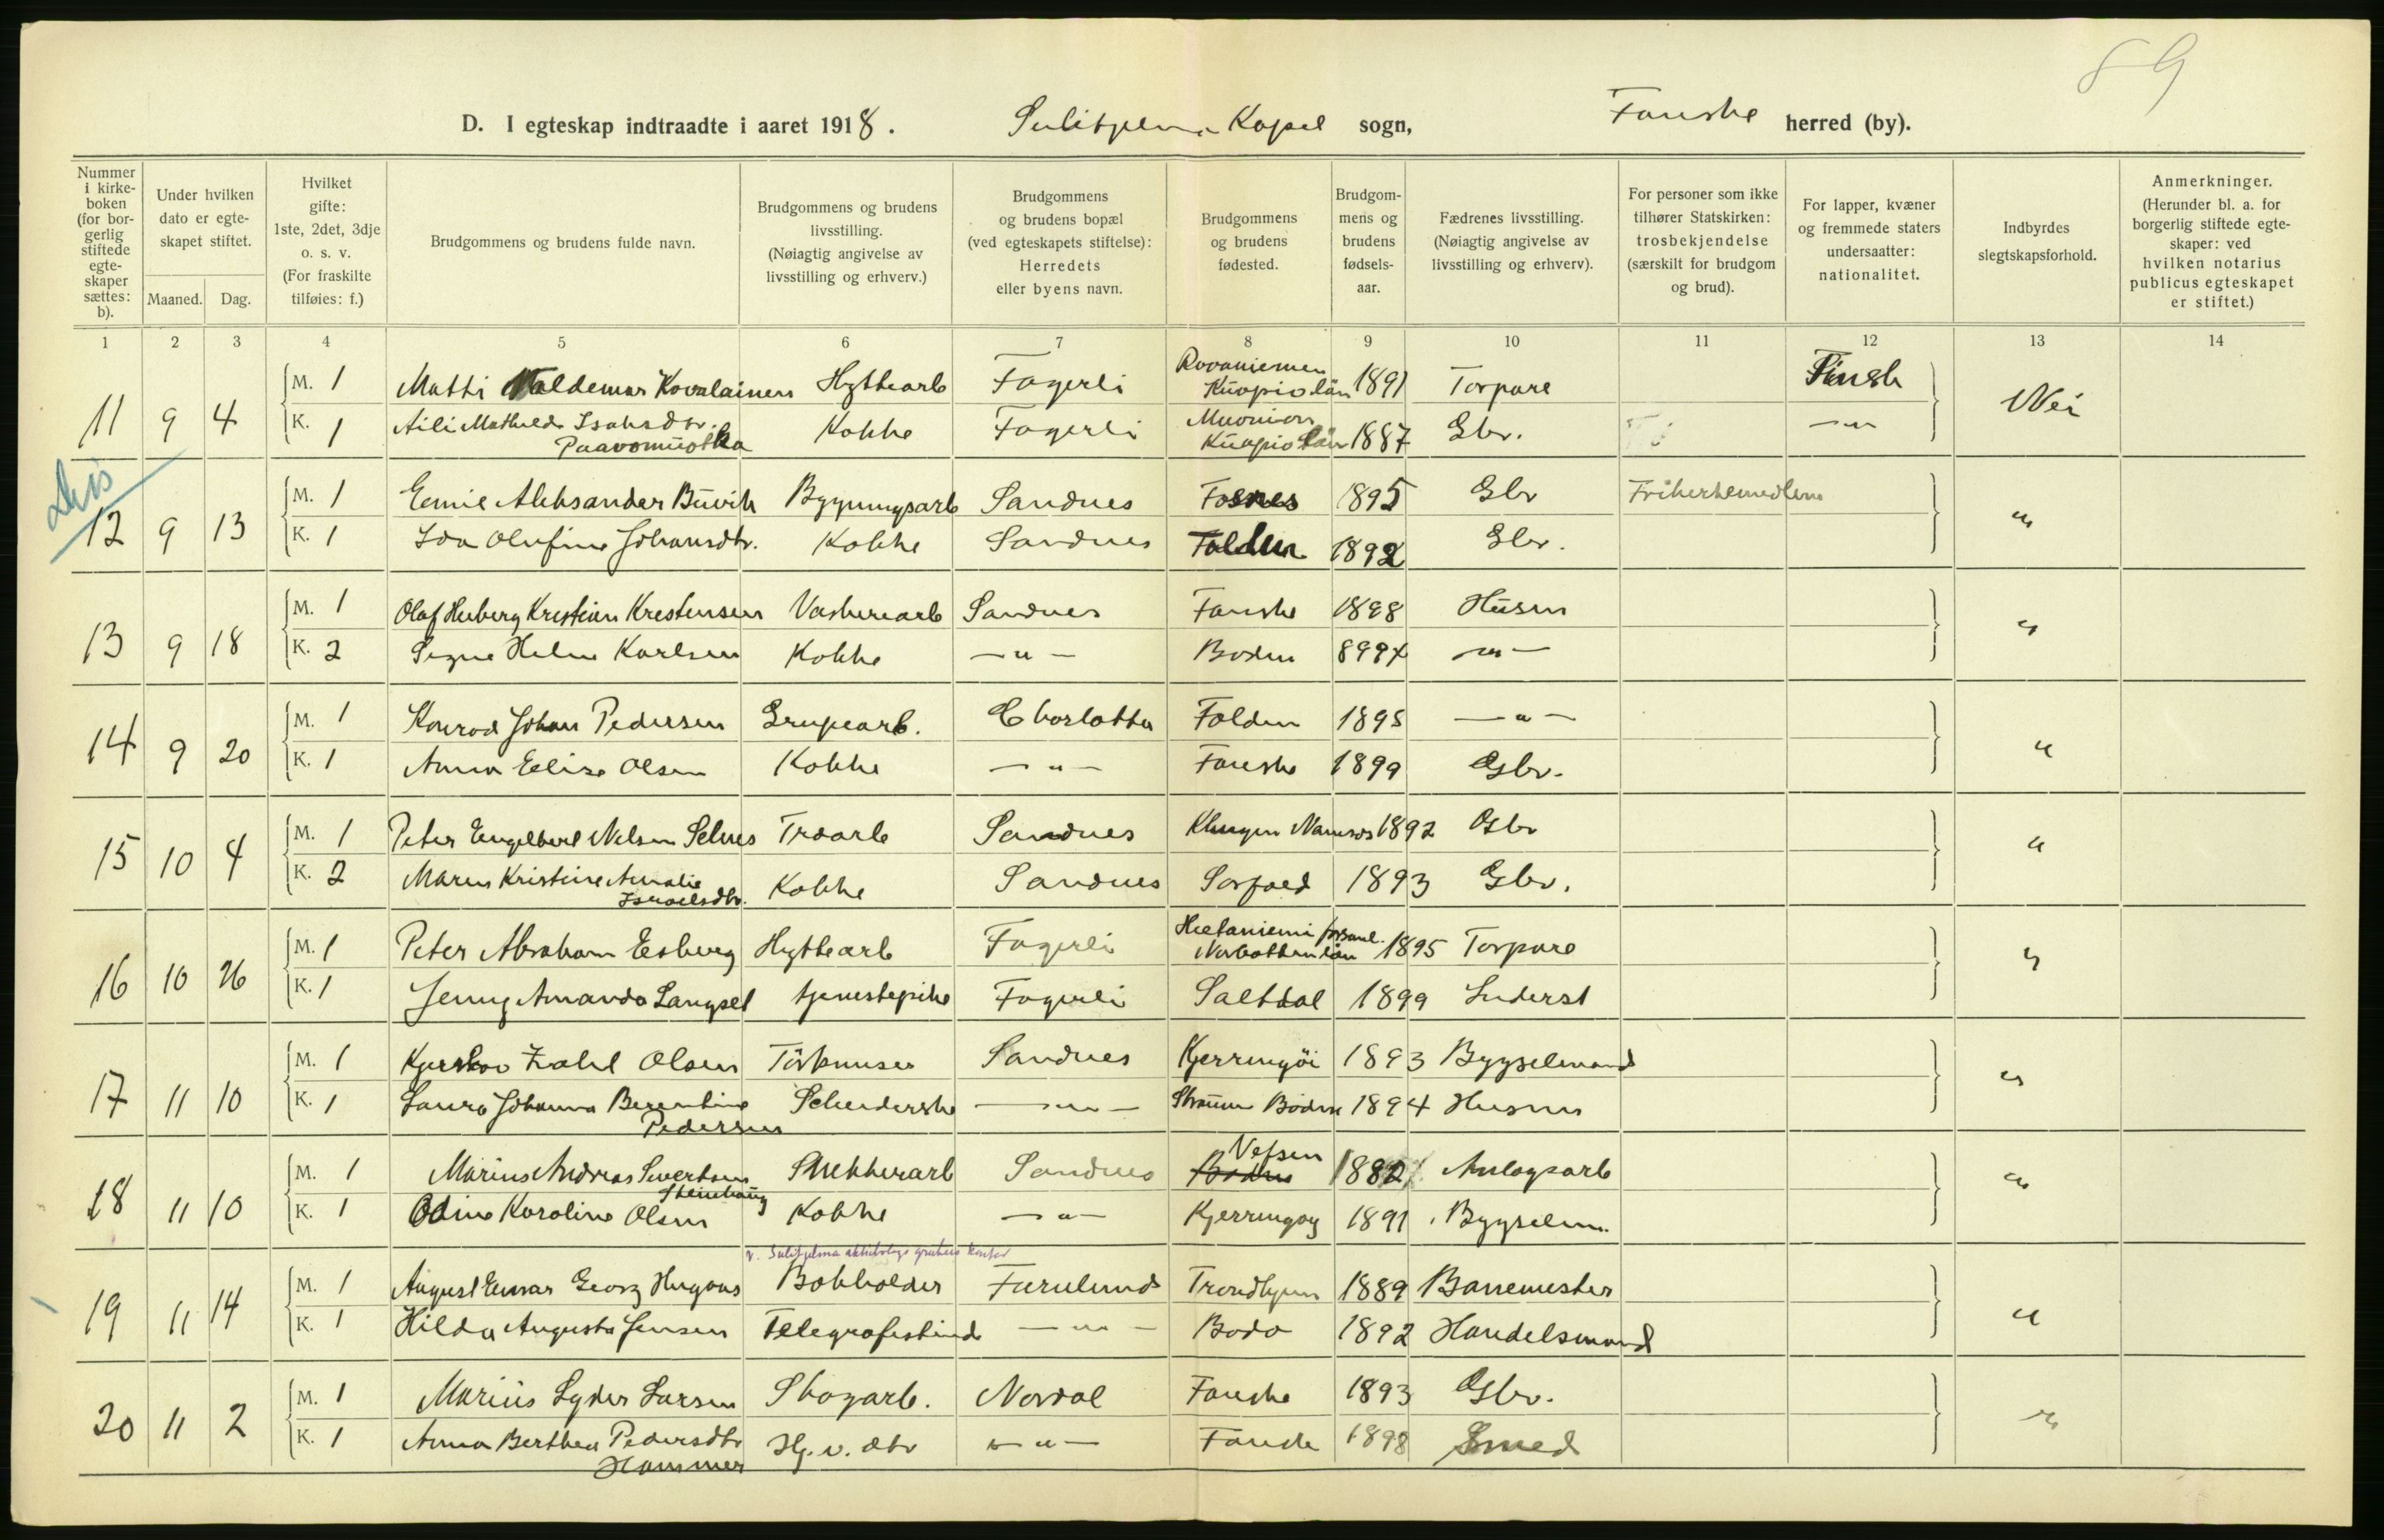 89
D. I egteskap indtraadte i aaret 1918. Sulitjelma Kapel sogn, Fauske herred (by).
Nummer i kirke-boken (for bor-gerlig stiftede egte-skaper sættes: b).
Under hvilken dato er egte-skapet stiftet.
Maaned. Dag.
Hvilket gifte: 1ste, 2det, 3dje o. s. v. (For fraskilte tilføies: f.)
Brudgommens og brudens fulde navn.
Brudgommens og brudens livsstilling. (Nøiagtig angivelse av livsstilling og erhverv.)
Brudgommens og brudens bopæl (ved egteskapets stiftelse): Herredets eller byens navn.
Brudgommens og brudens fødested.
Brudgom-mens og brudens fødsels-aar.
Fædrenes livsstilling. (Nøiagtig angivelse av livsstilling og erhverv).
For personer som ikke tilhører Statskirken: trosbekjendelse (særskilt for brudgom og brud).
For lapper, kvæner og fremmede staters undersaatter: nationalitet.
Indbyrdes slegtskapsforhold.
Anmerkninger. (Herunder bl. a. for borgerlig stiftede egte-skaper: ved hvilken notarius publicus egteskapet er stiftet.)
1 2 3 4 5 6 7 8 9 10 11 12 13 14
11 9 4 M. 1 Matti Valdemar Kovalainen Hyttearb Fagerli Rovaniemen Kuopio län 1891 Torpare Finsk Nei
K. 1 Aili Mathilde Isaksdtr. Paavomuotka Kokke Fagerli Muonion Kuopio län 1887 Gbr. -"-
12 9 13 M. 1 Emil Aleksander Buvik Bygningsarb Sandnes Fosnes 1895 Gbr Frikirkemedlem "
K. 1 Ida Olufine Johansdtr. Kokke Sandnes Folden 1892 Gbr.
13 9 18 M. 1 Olaf Heiberg Kristian Kristensen Vaskeriarb Sandnes Fauske 1898 Husm "
K. 2 Signe Helene Karlsen Kokke -"- Bodin 8994 -"-
14 9 20 M. 1 Konrad Johan Pedersen Grupearb. Charlotta Folden 1895 -"- "
K. 1 Anna Elise Olsen Kokke -"- Fauske 1899 Gbr.
15 10 4 M. 1 Peter Engelbert Nelsen Selnes Traarb Sandnes Klingen Namsos 1892 Gbr "
K. 2 Maren Kristine Amalie Israelsdtr. Kokke Sandnes Sørfold 1893 Gbr.
16 10 26 M. 1 Peter Abraham Esberg Hyttearb Fagerli Hietaniemi forsaml. Norbotten län 1895 Torpare "
K. 1 Jenny Amanda Langset tjenestepike Fagerli Saltdal 1899 Inderst
17 11 10 M. 1 Kjerskov Zahl Olsen Tørkmuser Sandnes Kjerringöi 1893 Bygselmand "
K. 1 Laura Johanna Berentine Pedersen Schneiderske -"- Strømm Bodin 1894 Husm
18 11 10 M. 1 Marius Andreas Sivertsen Steinhaug Snekkerarb Sandnes Bodin Vefsen 1882 Anlægsarb "
K. 1 Odine Karoline Olsen Kokke -"- Kjerringøy 1891 Bygselm.
19 11 14 M. 1 August Einar Georg Hugaas v. Sulitjelma aktiebolags grubers kontor Bokholder Furulund Trondhjem 1889 Banemester "
K. 1 Hilda Augusta Jensen Telegrafistinde -"- Bodø 1892 Handelsmand
20 11 2 M. 1 Marius Lyder Larsen Skogarb. Nordal Fauske 1893 Gbr. "
K. 1 Anna Berthea Pedersdtr Hammer Hj. v. dtr -"- Fauske 1898 Smed